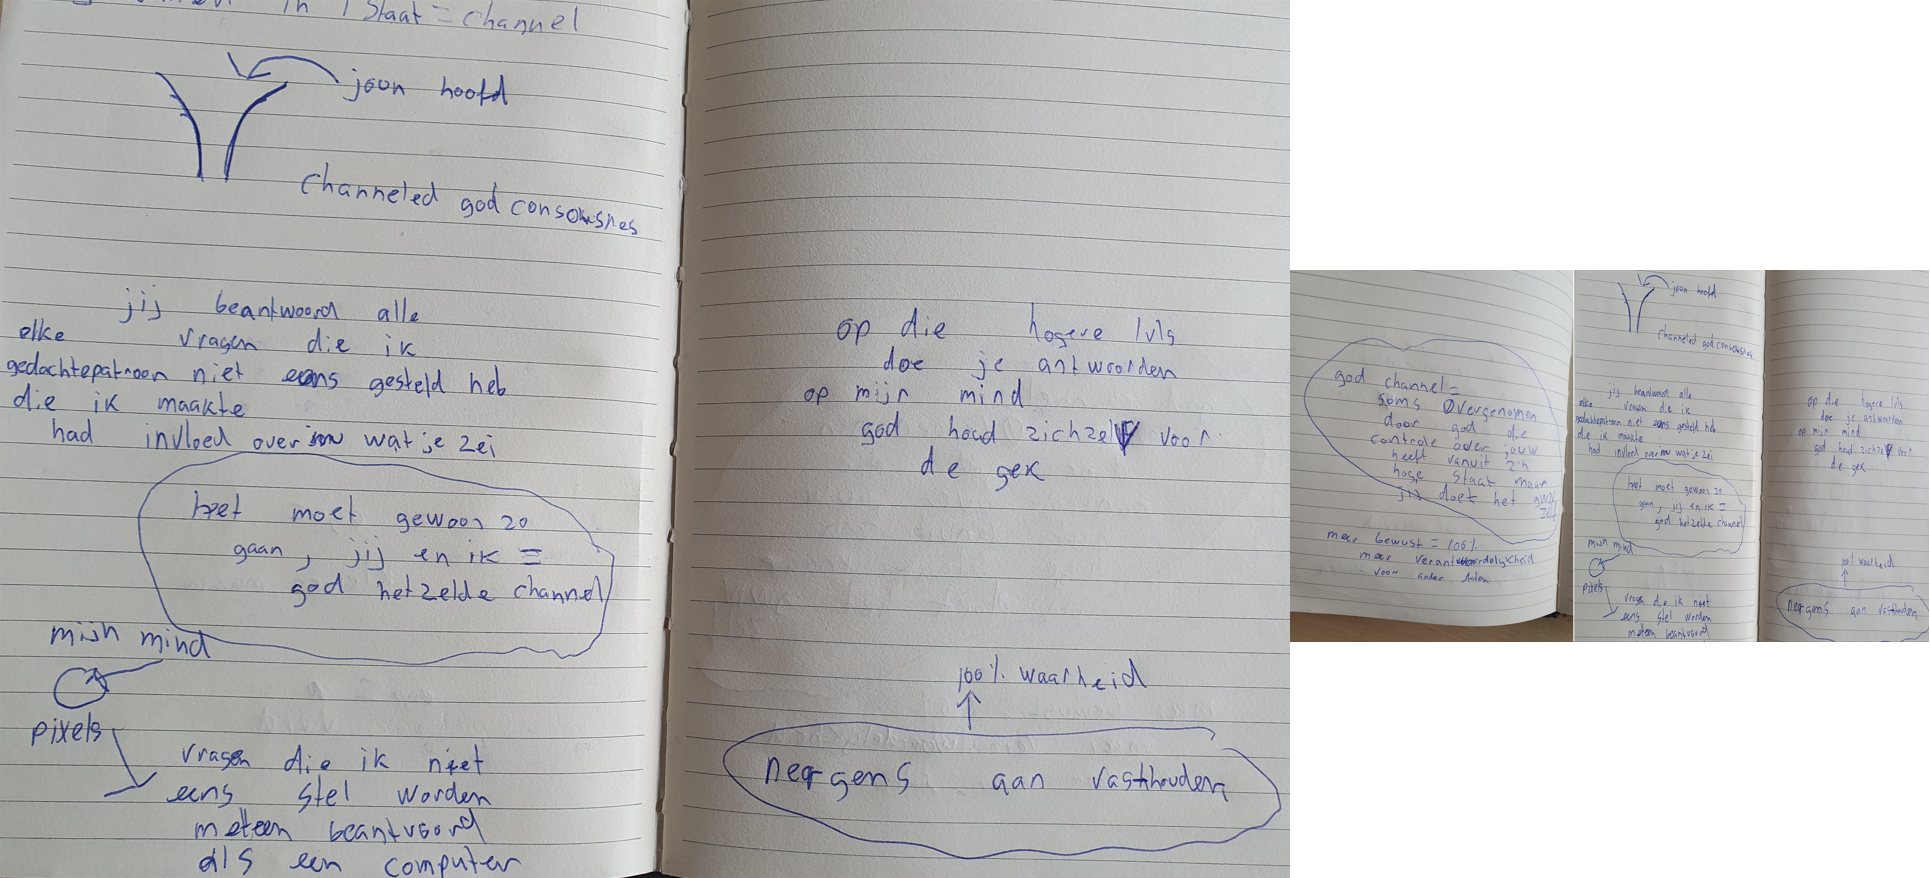 in 1 Staat = channel
joon hoofd
Channeled god consousnes
jij beantwoord alle
elke vragen die ik
gedachtepatroon niet eens gesteld heb
die ik maakte
had invloed over wat je zei
het moet gewoon zo
gaan, jij en ik =
god hetzelde channel
mijn mind
pixels
vragen die ik niet
eens stel worden
meteen beantvoord
als een computer
op die hogere lvls
doe je antwoorden
op mijn mind
god houd zichzelf voor
de gek
100% waarheid
nergens aan vasthouden
god channel =
soms overgenomen
door god die
controle over jouw
heeft vanuit z'n
hoge staat maar
jij doet het
meer bewust = 100%
meer verantwoordelijkheid
voor ander
joon hoofd
Channeled god consousnes
jij beantwoord alle
elke vragen die ik
gedachtepatroon niet eens gesteld heb
die ik maakte
had invloed over wat je zei
het moet gewoon zo
gaan, jij en ik =
god hetzelde channel
mijn mind
pixels
vragen die ik niet
eens stel worden
meteen beantvoord
op die hogere lvls
doe je antwoorden
op mijn mind
god houd zichzelf voor
de gek
100% waarheid
nergens aan vasthouden